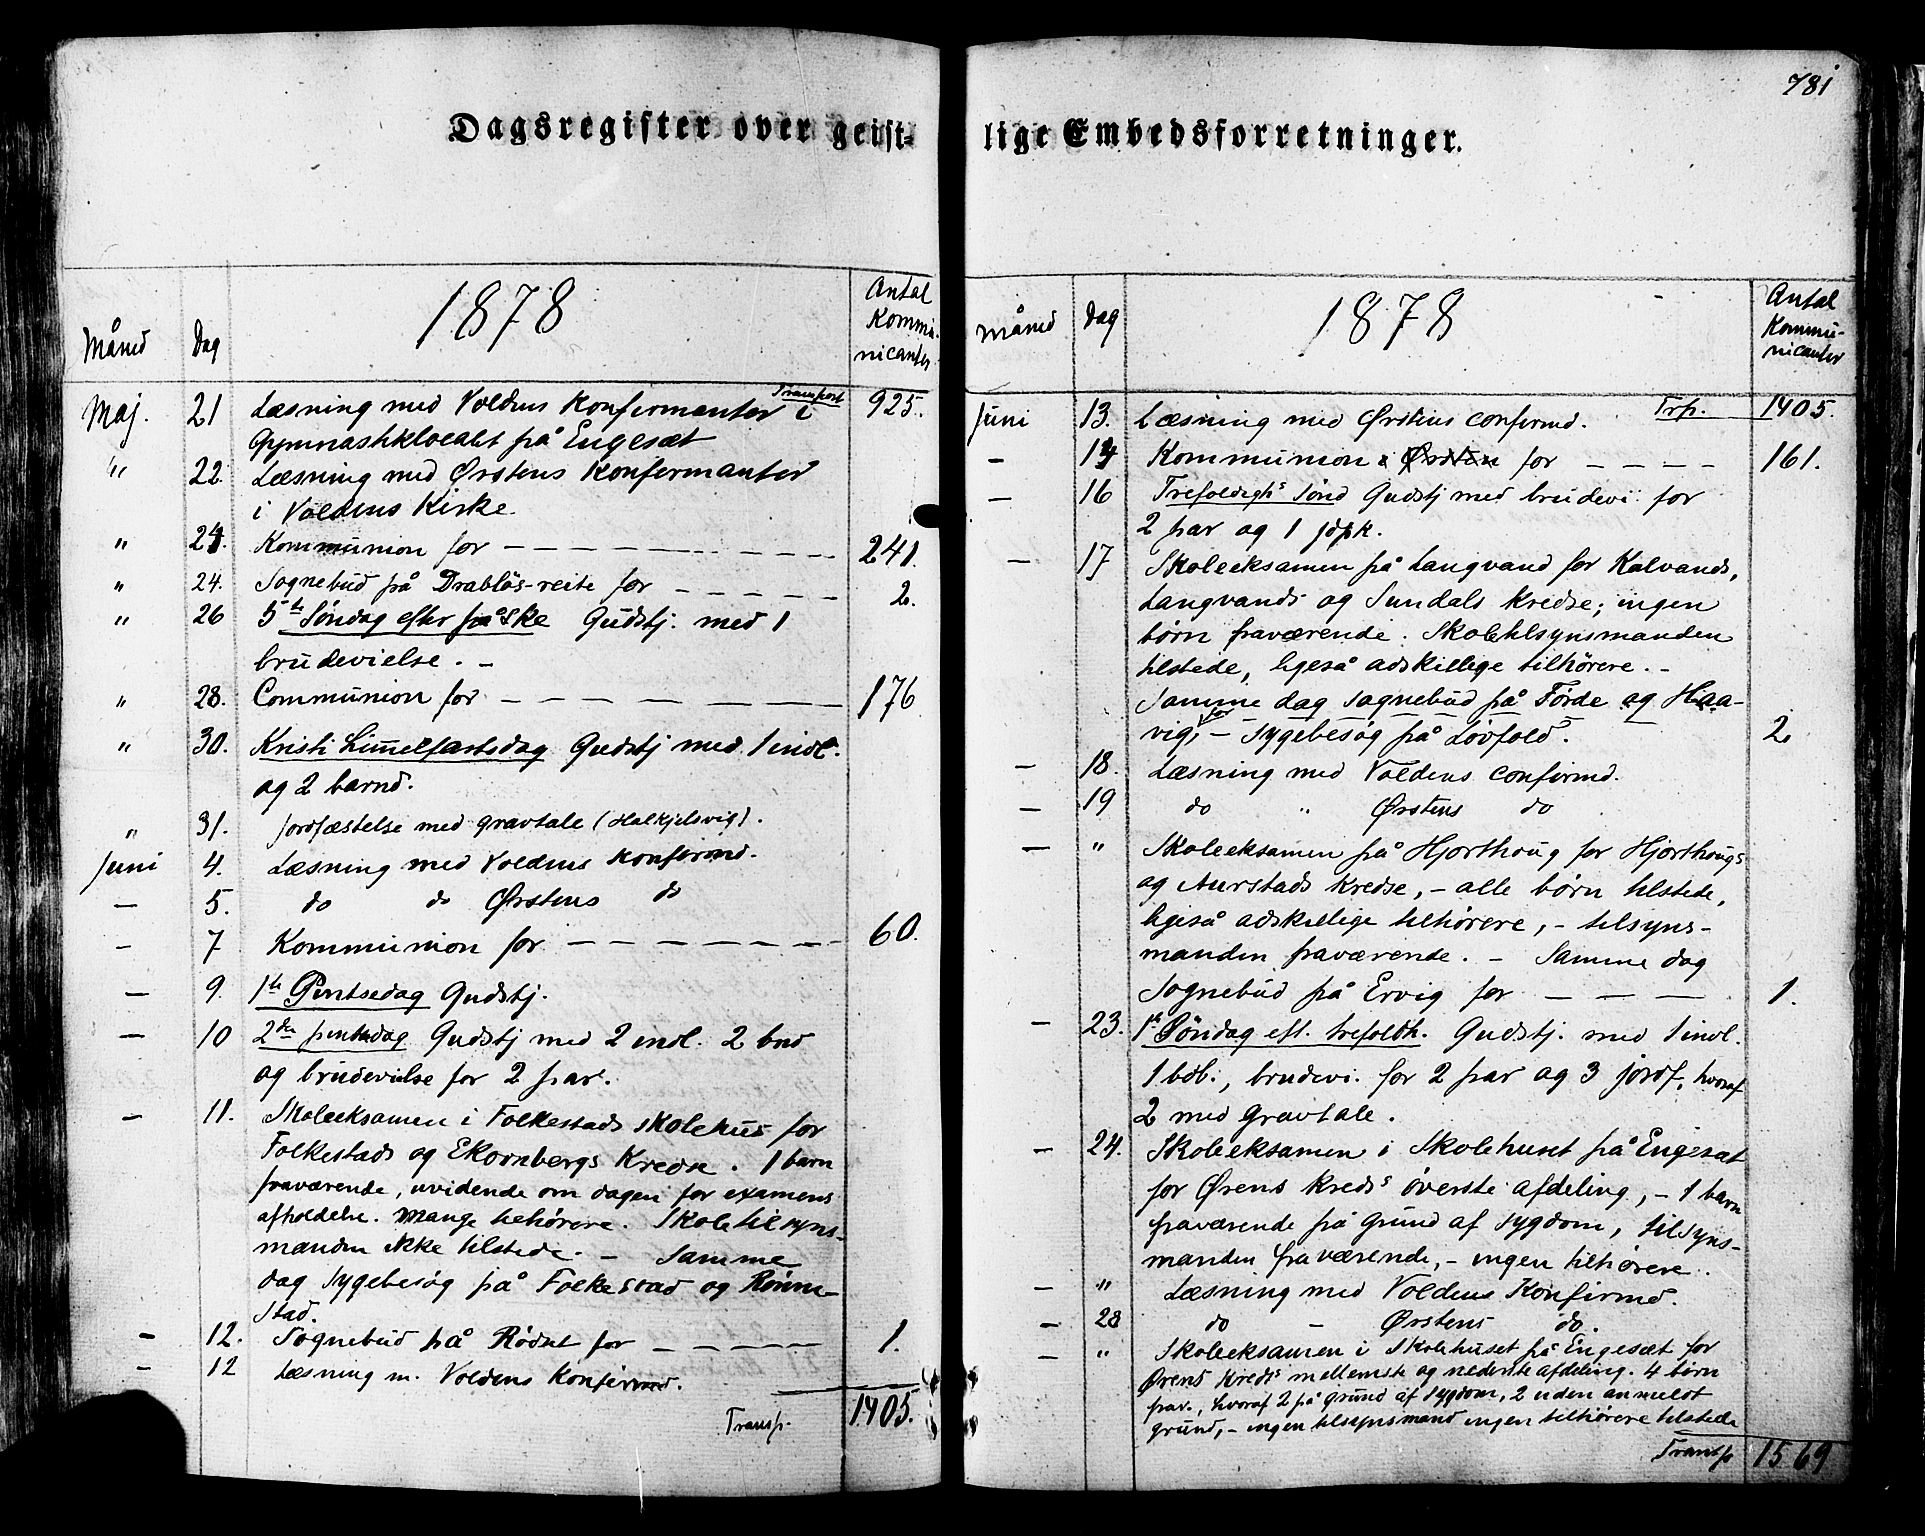 Dagsregister over geist-
1878
Måned
Dag
Antal
Kommu-
nicanter
Transport
Maj. 21 Læsning med Voldens Konfirmanter i 925.
Gymnastiklocalet på Engesæt
" 22. Læsning med Ørstens Konfermanter
i Voldens Kirke
" 24. Kommunion for – – – – – – – 241.
" 24. Sognebud på Drabløs-reite for – – – – – 2.
" 26 5te Søndag efter påske Gudstj. med 1
brudevielse. –
" 28. Communion for – – – – – – – 176
" 30. Kristi Himmelfartsdag Gudstj med 1 indl.
og 2 barnd.
" 31. Jordfæstelse med gravtale (Halkjelsvig).
Juni 4. Læsning med Voldens Konfirmd.
– 5. do do Ørstens do
– 7 Kommunion for – – – – – – – 60.
– 9. 1te Pintsedag Gudstj.
– 10 2den pintsdag Gudstj med 2 indl. 2 bnd
og brudevielse for 2 par.
– 11. Skoleeksamen i Folkestads skolehus for
Folkestads og Ekornbergs Kredse. 1 barn
fraværende, uvidende om dagen for examens
afholdelse. Mange tilhørere. Skoletilsyns-
manden ikke tilstede. – Samme
dag Sygebesøg på Folkestad og Rønne-
stad.
– 12. Sognebud på Rødset for – – – – – 1.
– 12 Læsning m. Voldens Konfirmd.
Transp. 1405.
781
lige Embedsforretninger.
1878
Måned
Dag
Antal
Kommu-
nicanter
Juni 13. Læsning med Ørstens confirmd. Trp. 1405.
– 14 Kommunion i Ørsten for – – – – 161.
– 16 Trefoldighs Sønd Gudstj med brudevi. for
2 par og 1 jdpk.
– 17 Skoleeksamen på Langvand for Kalvands,
Langvands og Sundals Kredse; ingen
børn fraværende. Skoletilsynsmanden
tilstede, ligeså adskillige tilhørere. –
Samme dag Sognebud på Førde og Haa-
vig, – Sygebesøg på Løvfold. 2.
– 18. Læsning med Voldens confirmd.
– 19 do " Ørstens do
– " Skoleeksamen på Hjorthoug for Hjorthougs
og Aurstads Kredse, – alle børn tilstede,
ligeså adskillige tilhørere, – tilsyns-
manden fraværende. – Samme dag
Sognebud på Ervig for – – – 1.
– 23. 1ste Søndag eft. trefoldh. Gudstj. med 1 indl.
1 bdb., brudevi. for 2 par og 3 jordf, hvoraf
2 med gravtale.
– 24. Skoleeksamen i Skolehuset på Engesæt
for Ørens Kreds's øverste afdeling, – 1 barn
fraværende på grund af sygdom, tilsyns-
manden fraværende, – ingen tilhørere.
– " Læsning med Voldens Konfirmd.
– 28 do – Ørstens do.
– " Skoleeksamen i Skolehuset på Engesæt for
Ørens Kreds's mellemste og nederste afdeling. 4 børn
frav., hvoraf 2 på grund af sygdom, 2 uden anmeldt
grund, – ingen tilsynsmand ingen tilhørere tilstede
Transp 1569